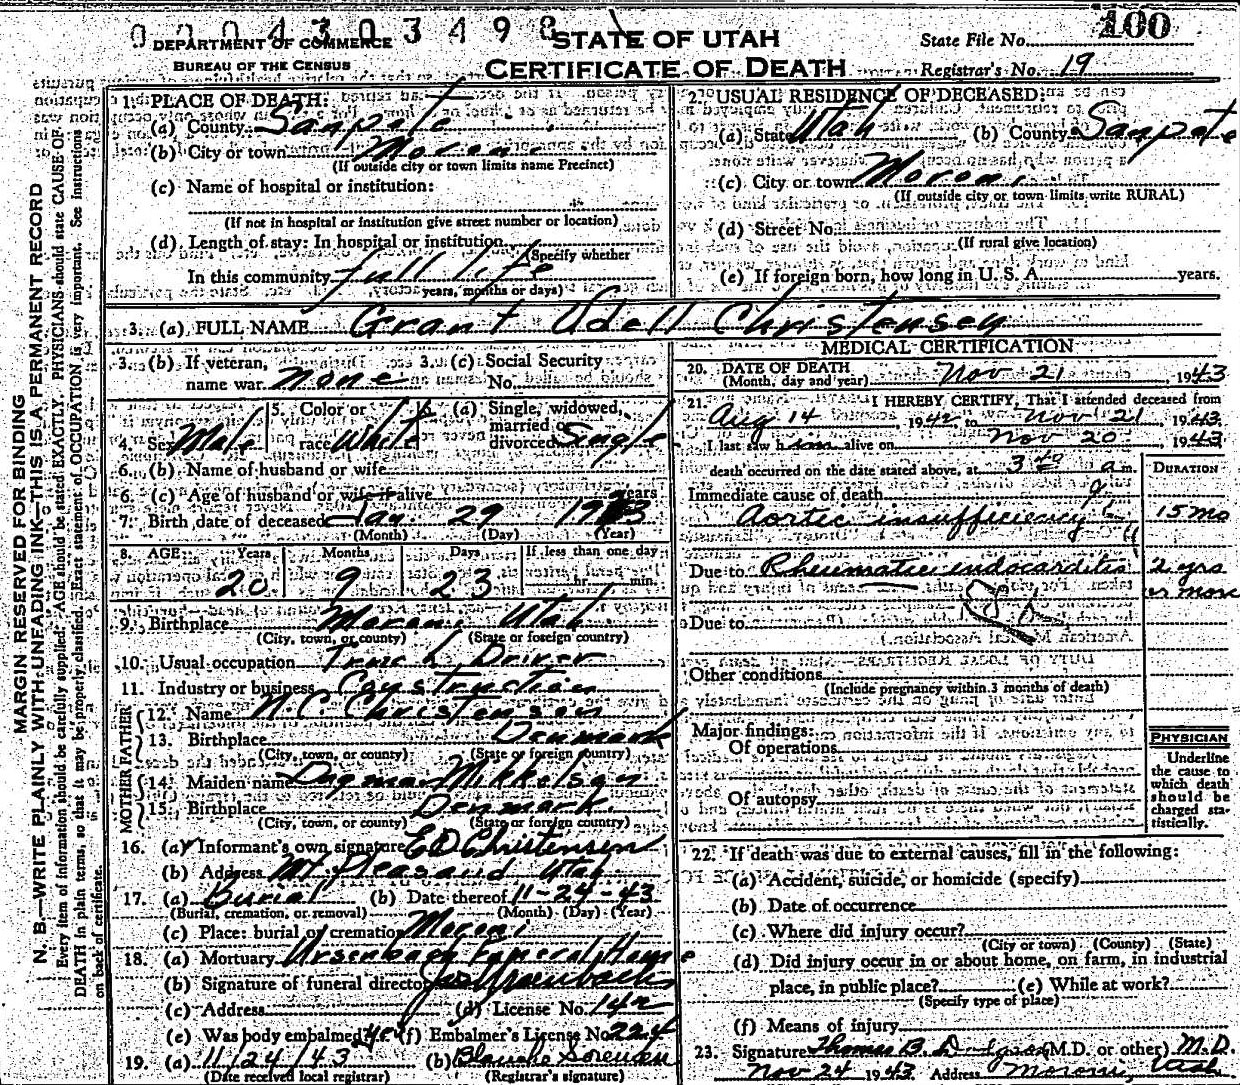 0004303498
DEPARTMENT OF COMMERCE
BUREAU OF THE CENSUS
STATE OF UTAH
CERTIFICATE OF DEATH
State File No. 100
Registrar's No. 19
MARGIN RESERVED FOR BINDING
N. B.—WRITE PLAINLY WITH UNFADING INK—THIS IS A PERMANENT RECORD
Every item of information should be carefully supplied. AGE should be stated EXACTLY. PHYSICIANS should state CAUSE OF
DEATH in plain terms, so that it may be properly classified. Exact statement of OCCUPATION is very important. See instructions
on back of certificate.
1. PLACE OF DEATH:
(a) County Sanpete
(b) City or town Moroni
(If outside city or town limits name Precinct)
(c) Name of hospital or institution:
(If not in hospital or institution give street number or location)
(d) Length of stay: In hospital or institution
(Specify whether
In this community full life
years, months or days)
2. USUAL RESIDENCE OF DECEASED:
(a) State Utah (b) County Sanpete
(c) City or town Moroni
(If outside city or town limits write RURAL)
(d) Street No.
(If rural give location)
(e) If foreign born, how long in U. S. A. years.
3. (a) FULL NAME Grant Udell Christensen
3. (b) If veteran, name war none 3. (c) Social Security No.
4. Sex Male 5. Color or race White 6. (a) Single, widowed, married or divorced Single
6. (b) Name of husband or wife
6. (c) Age of husband or wife if alive years
7. Birth date of deceased Jan. 29 1923
(Month) (Day) (Year)
8. AGE: Years Months Days If less than one day
20 9 23 hr. min.
9. Birthplace Moroni Utah
(City, town, or county) (State or foreign country)
10. Usual occupation Truck Driver
11. Industry or business Construction
FATHER
12. Name N. C. Christensen
13. Birthplace Denmark
(City, town, or county) (State or foreign country)
MOTHER
14. Maiden name Dagmar Mikkelsen
15. Birthplace Denmark
(City, town, or county) (State or foreign country)
16. (a) Informant's own signature E D Christensen
(b) Address Mt. Pleasant Utah
17. (a) Burial (b) Date thereof 11-24-43
(Burial, cremation, or removal) (Month) (Day) (Year)
(c) Place: burial or cremation Moroni
18. (a) Mortuary Ursenbach Funeral Home
(b) Signature of funeral director Ursenbach
(c) Address (d) License No. 142
(e) Was body embalmed yes (f) Embalmer's License No. 224
19. (a) 11/24/43 (b) Blanche Sorensen
(Date received local registrar) (Registrar's signature)
MEDICAL CERTIFICATION
20. DATE OF DEATH
(Month, day and year) Nov 21, 1943
21. I HEREBY CERTIFY, That I attended deceased from
Aug 14 1942, to Nov 21 1943.
I last saw him alive on Nov 20 1943
death occurred on the date stated above, at 3 40 a m. DURATION
Immediate cause of death
Aortic insufficiency 15 mo
Due to Rheumatic endocarditis 2 yrs
or more
Due to
Other conditions
(Include pregnancy within 3 months of death)
Major findings:
Of operations
Of autopsy
PHYSICIAN
Underline
the cause to
which death
should be
charged sta-
tistically.
22. If death was due to external causes, fill in the following:
(a) Accident, suicide, or homicide (specify)
(b) Date of occurrence
(c) Where did injury occur?
(City or town) (County) (State)
(d) Did injury occur in or about home, on farm, in industrial
place, in public place? (e) While at work?
(Specify type of place)
(f) Means of injury
23. Signature Thomas B. (M.D. or other) M.D.
Nov 24 1943. Address Moroni Utah